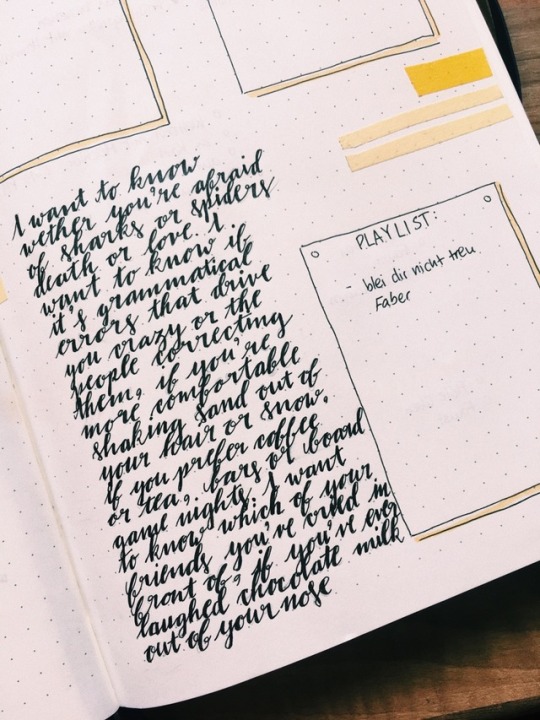 I want to know
wether you're afraid
of sharks or spiders
death or love. I
want to know if
it's grammatical
errors that drive
you crazy or the
people correcting
them, if you're
more comfortable
shaking sand out of
your hair or snow.
If you prefer coffee
or tea, bars or board
game nights. I want
to know which of your
friends you've cried in
front of, if you've ever
laughed chocolate milk
out of your nose
PLAYLIST:
- blei dir nicht treu
Faber